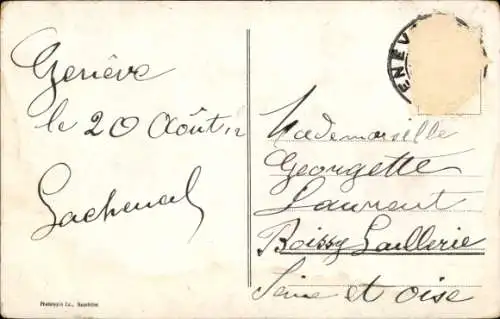 Genève
le 20 Août 12
Lachenal
ENEV
Mademoiselle
Georgette
Laurent
Boissy Laillerie
Seine et oise
Phototypie Co., Neuchâtel